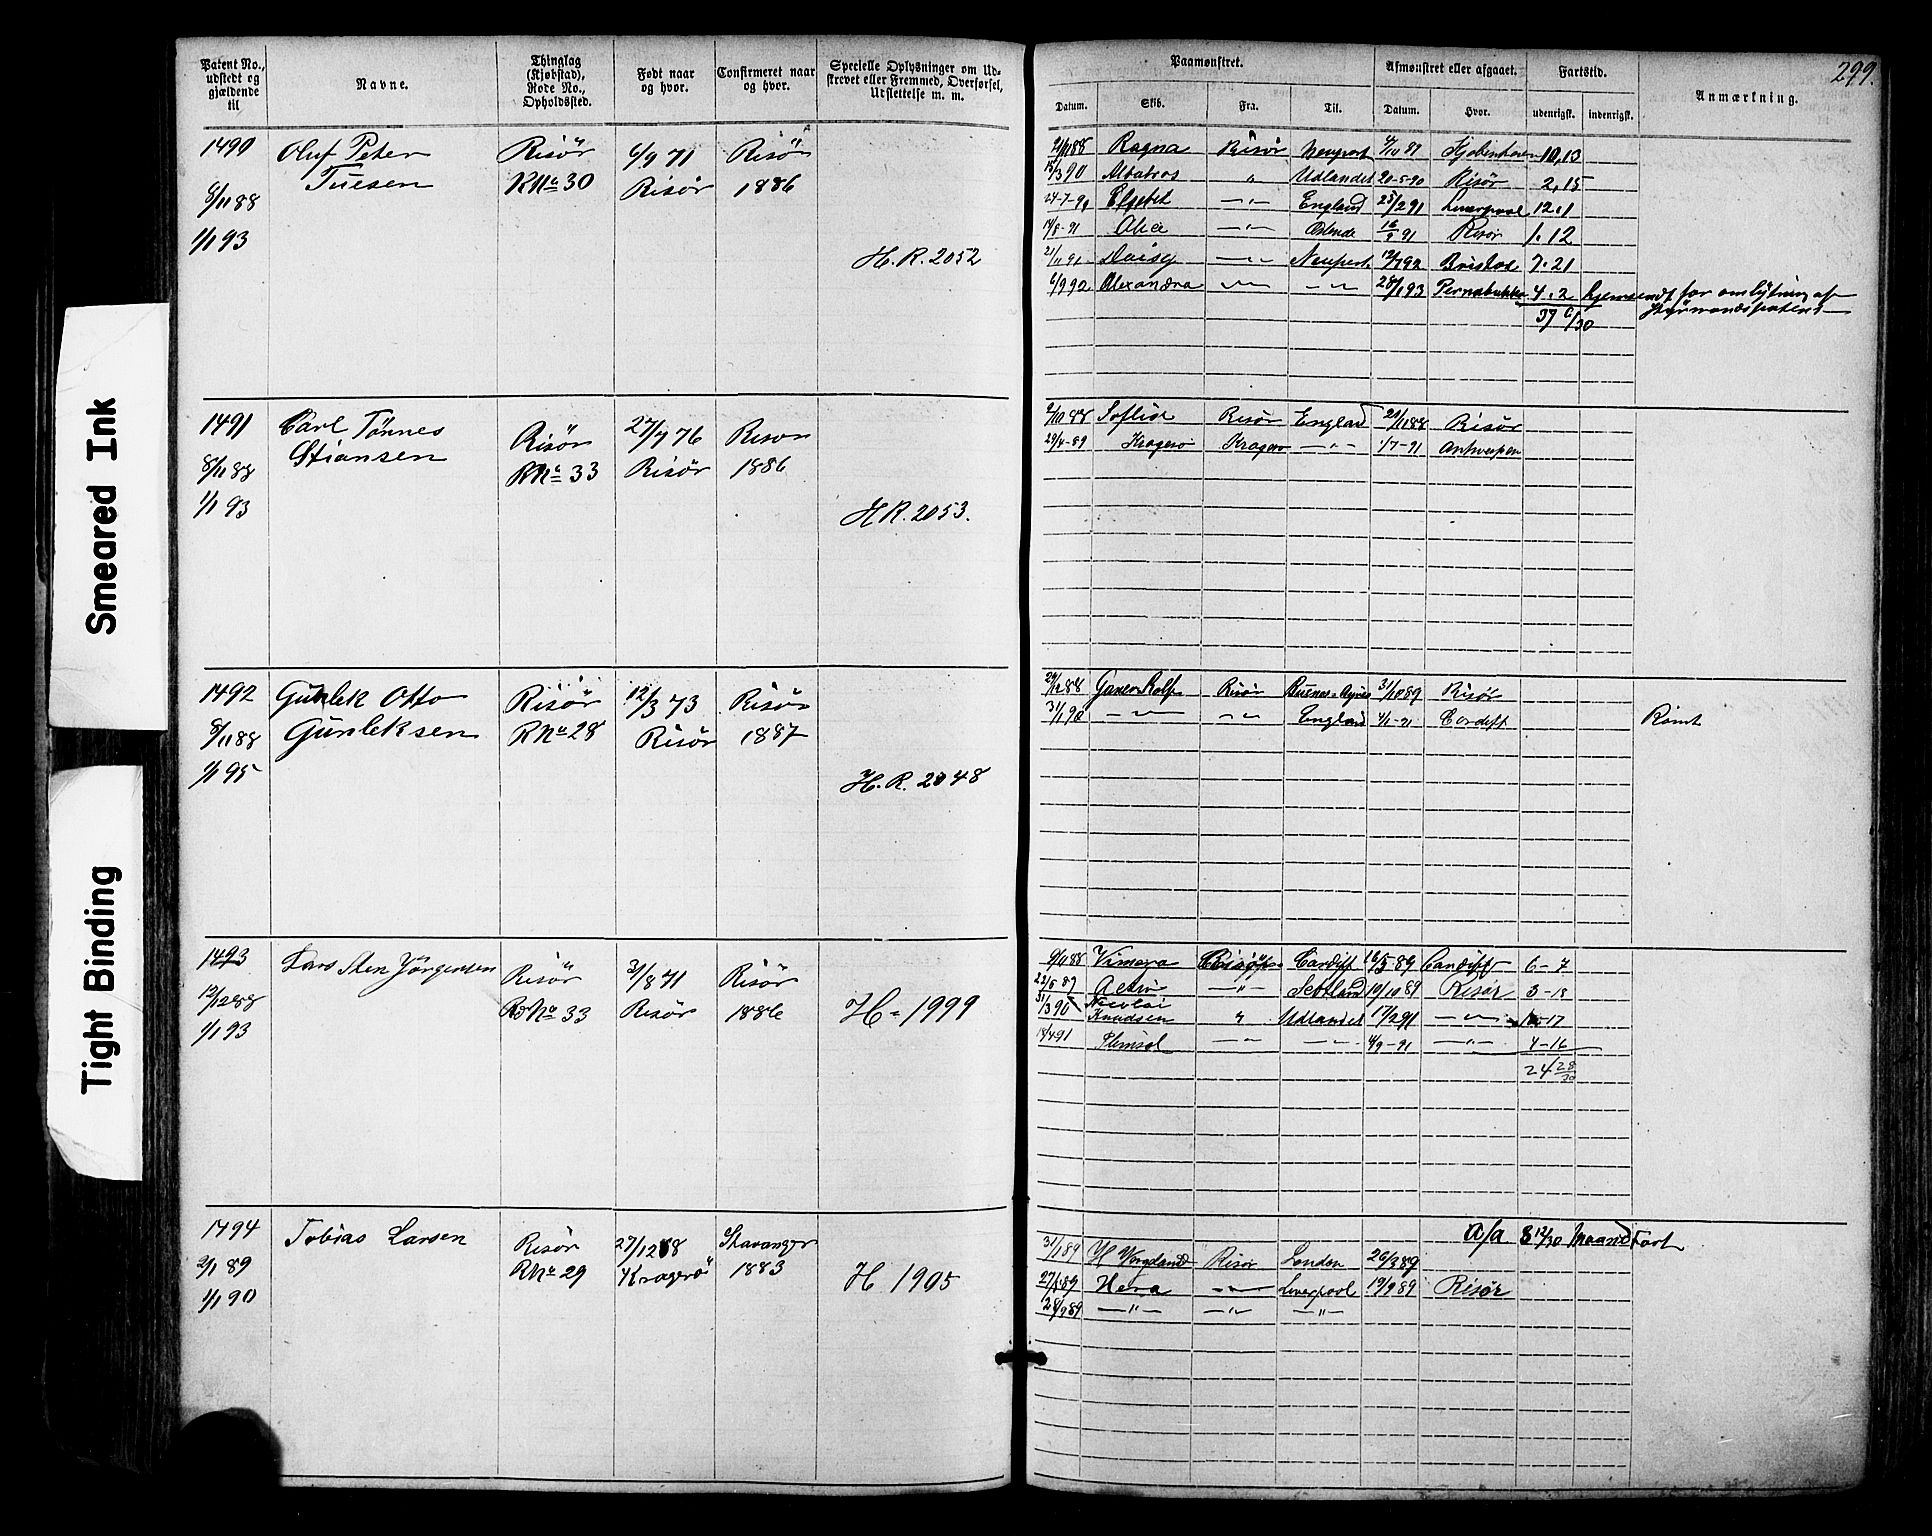 Smeared Ink
Tight Binding
Patent No., udstedt og gjældende til
Navne.
Thinglag (Kjøbstad), Rode No., Opholdssted.
Født naar og hvor.
Confirmeret naar og hvor.
Specielle Oplysninger om Udskrevet eller Fremmed, Overførsel, Utslettelse m. m.
Paamønstret.
Afmønstret eller afgaaet.
Fartstid.
Anmærkning.
299.
Datum. Skib. Fra. Til. Datum. Hvor. udenrigsk. indenrigsk.
1490 Oluf Peter Risör 6/9 71 Risör
8/11 88 Tuesen RNo 30 Risör 1886
1/1 93
H. R. 2052
21/11 88 Ragna Risör Newport Kjøbenhavn 10,13
15/3 90 Albatros " Udlandet 20-5-90 Risör 2,15
24-7-90 Elsebet —"— England 25/2 91 Liverpool 12.1
14/8-91 —"— Ostende 16/9 91 Risör 1.12
21/11 91 Daisy —"— Newport. 12/7 92 Bristol 7.21
6/9 92 Alexandra —"— —"— 28/1 93 4.2 hjemsendt for
Styrmandspatent
1491 Carl Tönnes Risör 27/7 76 Risör
8/11 88 Stiansen RNo 33 Risör 1886
1/1 93
H R. 2053.
9/10 88 Soflid Risör England 21/11 88 Risör
29/4-89 Kragerö Kragerö —"— 1/7-91 Antwerpen
1492 Gunlek Otto Risör 12/3 73 Risör
8/11 88 Gunleksen RNo 28 Risör 1887
1/1 95
H. R. 2048
29/12 88 Ganer Rolf Risör Buenos-Ayres 31/10 89 Risör
31/1 90 —"— —"— England 4/1-91 Cardiff Römt
1493 Lars Sten Jörgensen Risör 3/8 71 Risör
12/12 88 RNo 33 Risör 1886
1/1 93
H-1999
9/11 88 Vimera Risör Cardiff 16/5 89 Cardiff 6-7
22/5 89 —"— Scotland 10/10 89 Risör 3-18
31/3 90 Nicolai Knudsen " Udlandet 17/2 91 —"— 10-17
18/4 91 Plimsol —"— —"— 4/9-91 —"— 4-16
24 28/30
1494 Tobias Larsen Risör 27/12 68 Stavanger
2/1 89 RNo 29 Kragerö 1883
1/1 90
H 1905
a/a 8 12/30 Maaned Fart
31/1 89 H Wergeland Risör London 26/3 89
27/4 89 Hera —"— Liverpool 19/9 89 Risör
28/9 89 —"— —"— —"—